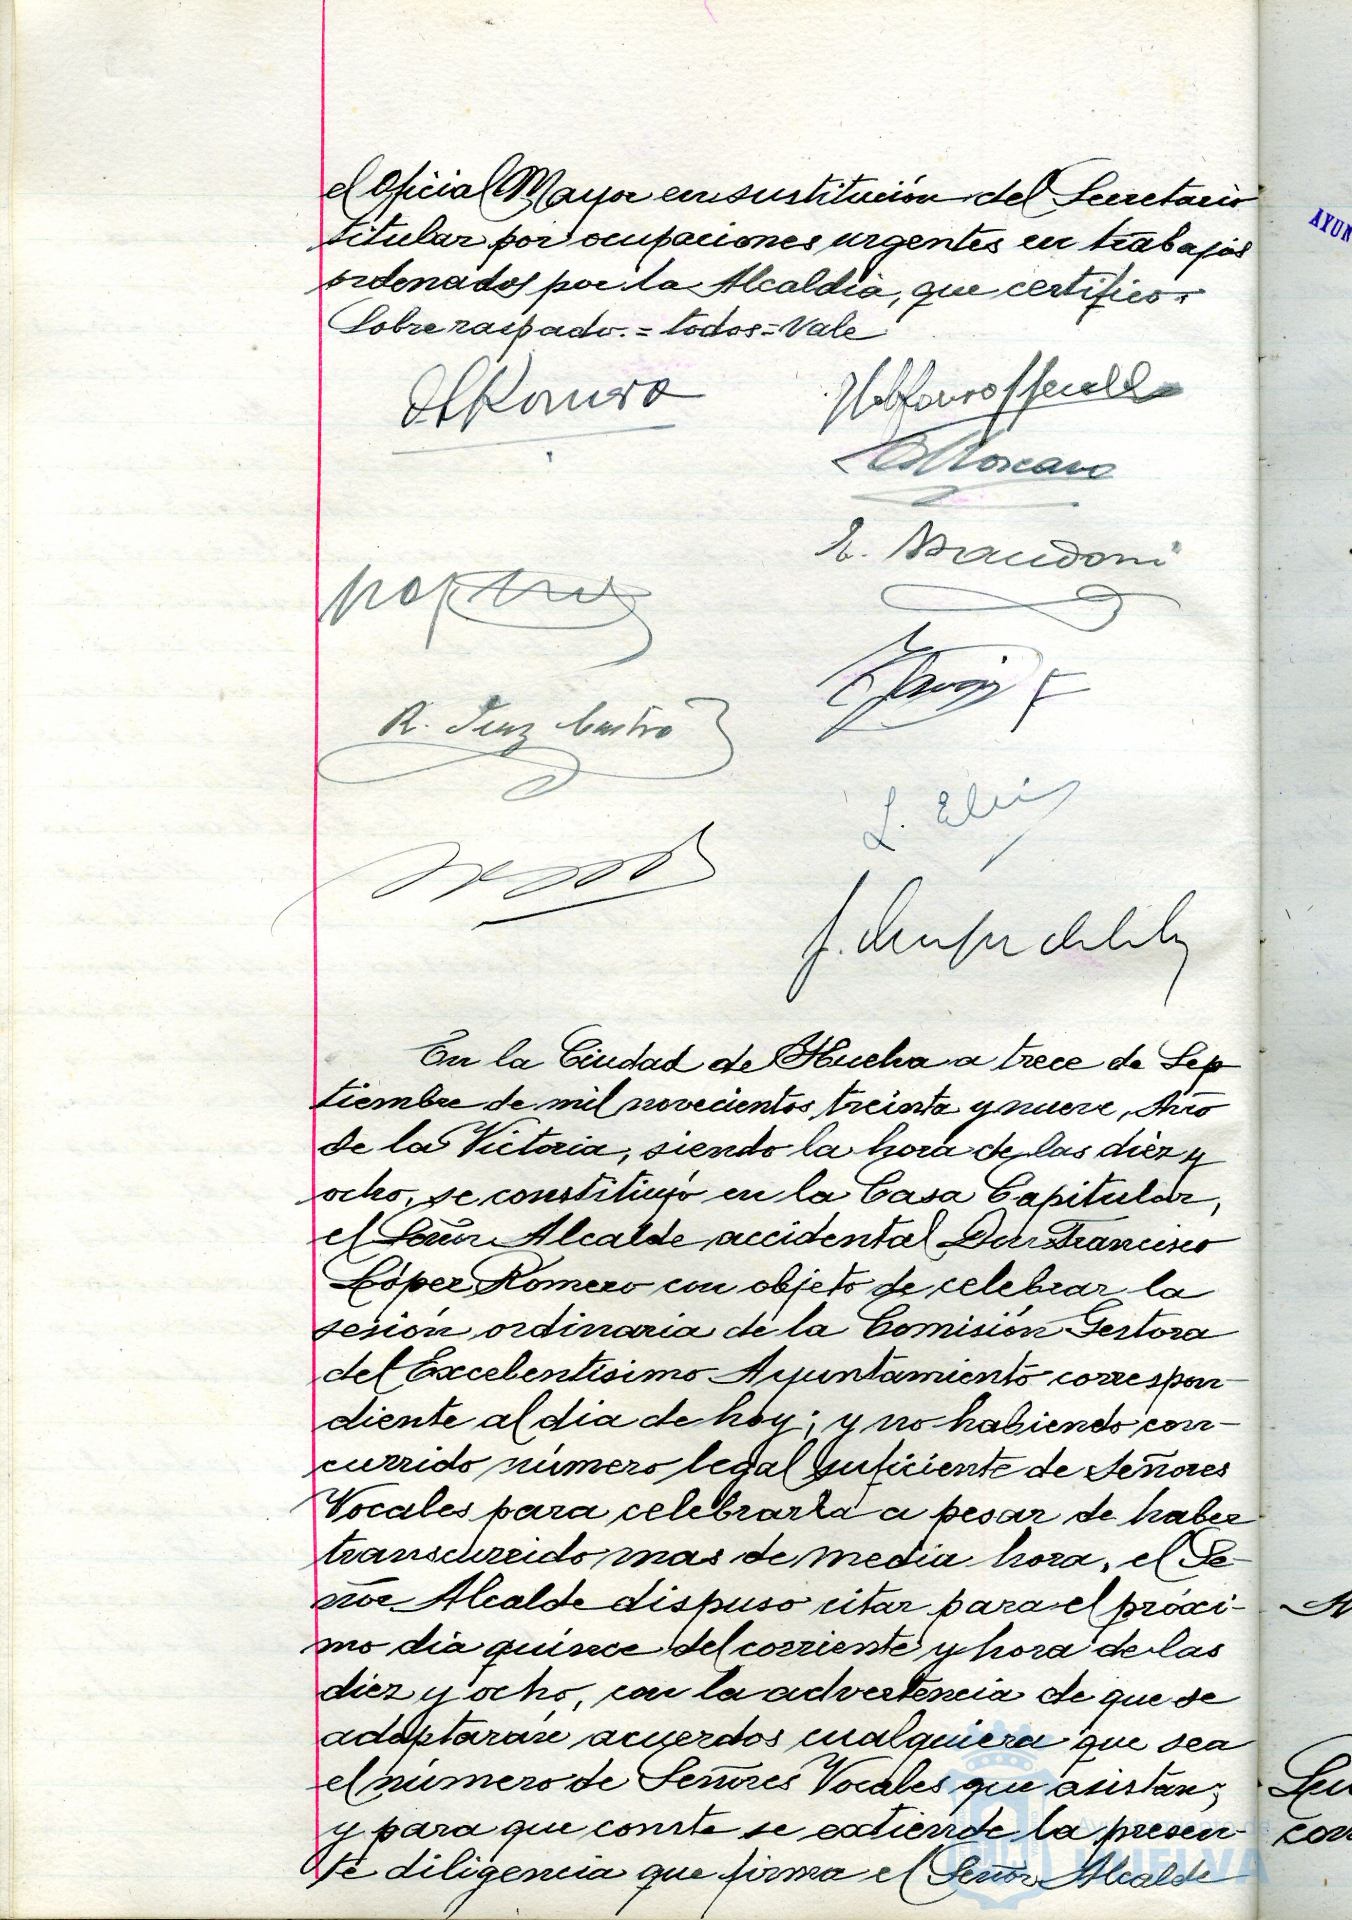 el Oficial Mayor en sustitución del Secretario
titular por ocupaciones urgentes en trabajos
ordenados por la Alcaldia, que certifico.
Sobre raspado.=todos=Vale
R. Diaz Castro
En la Ciudad de Huelva a trece de Sep
tiembre de mil novecientos treinta y nueve, Año
de la Victoria, siendo la hora de las diez y
ocho, se constituyó en la Casa Capitular,
el Señor Alcalde accidental Don Francisco
López Romero con objeto de celebrar la
sesión ordinaria de la Comisión Gestora
del Excelentísimo Ayuntamiento correspon-
diente al dia de hoy; y no habiendo con-
currido número legal suficiente de Señores
Vocales para celebrarla a pesar de haber
transcurrido mas de media hora, el Se-
ñor Alcalde dispuso citar para el próxi-
mo dia quince del corriente y hora de las
diez y ocho, con la advertencia de que se
adoptarán acuerdos cualquiera que sea
el número de Señores Vocales que asistan;
y para que conste se extiende la presen-
te diligencia que firma el Señor Alcalde
AYUN
HUELVA